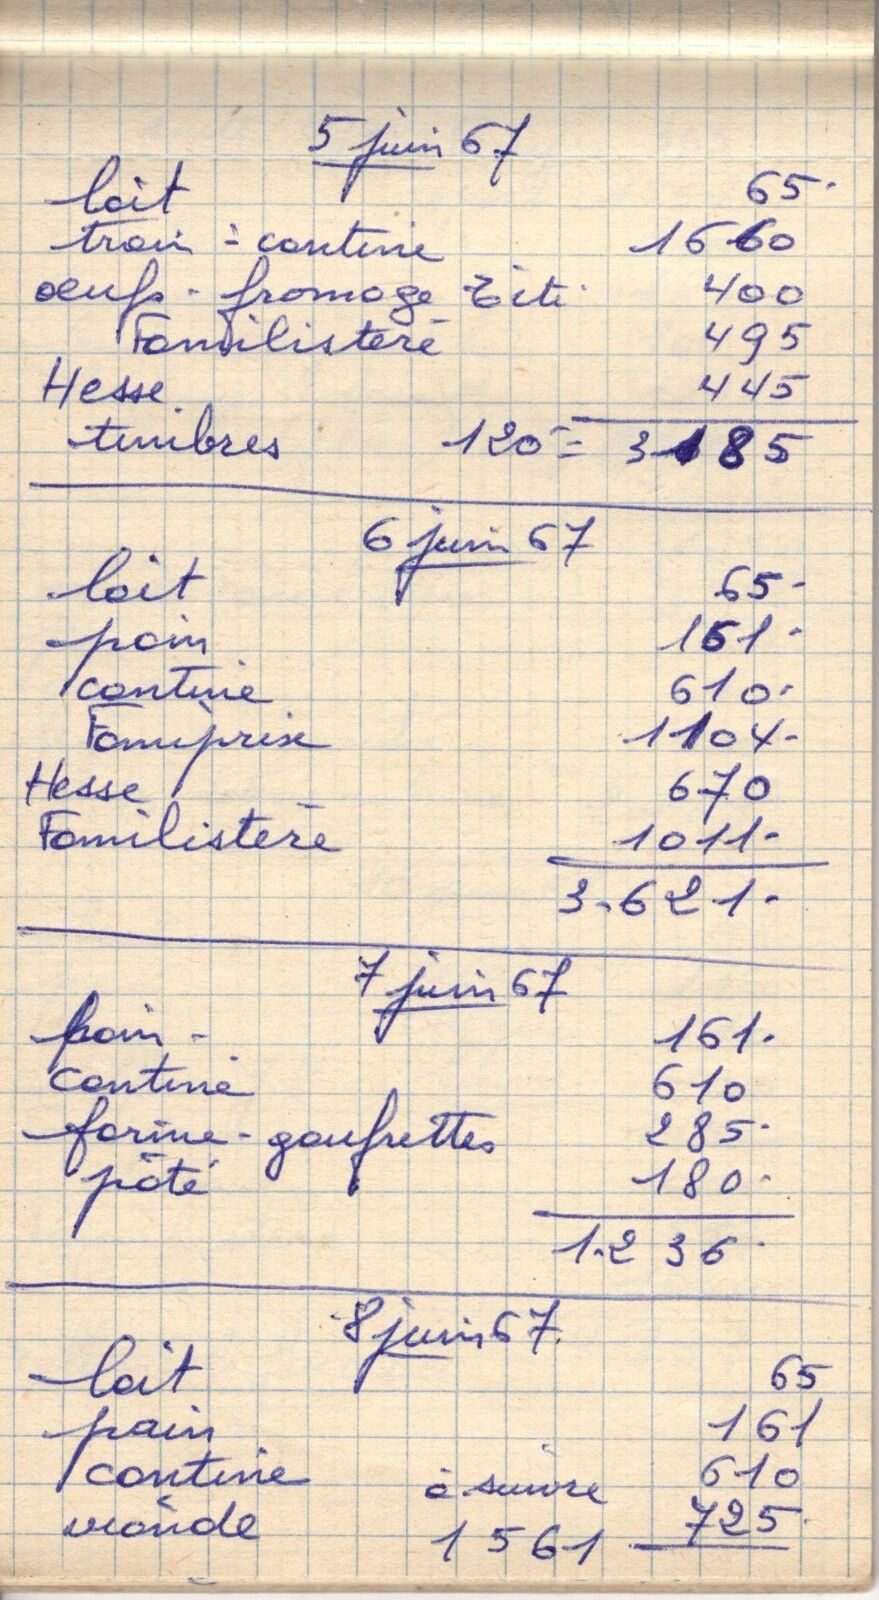 5 juin 67
lait 65.
train - cantine 1660
oeufs - fromage Titi 400
Familistère 495
Hesse 445
timbres 120 = 3185
6 juin 67
lait 65.
pain 161.
cantine 610.
Famiprix 1104.
Hesse 670
Familistère 1011.
3.621.
7 juin 67
pain - 161.
cantine 610
farine - gaufrettes 285.
pâté 180.
1.236.
8 juin 67.
lait 65
pain 161
cantine à suivre 610
viande 1561 725.